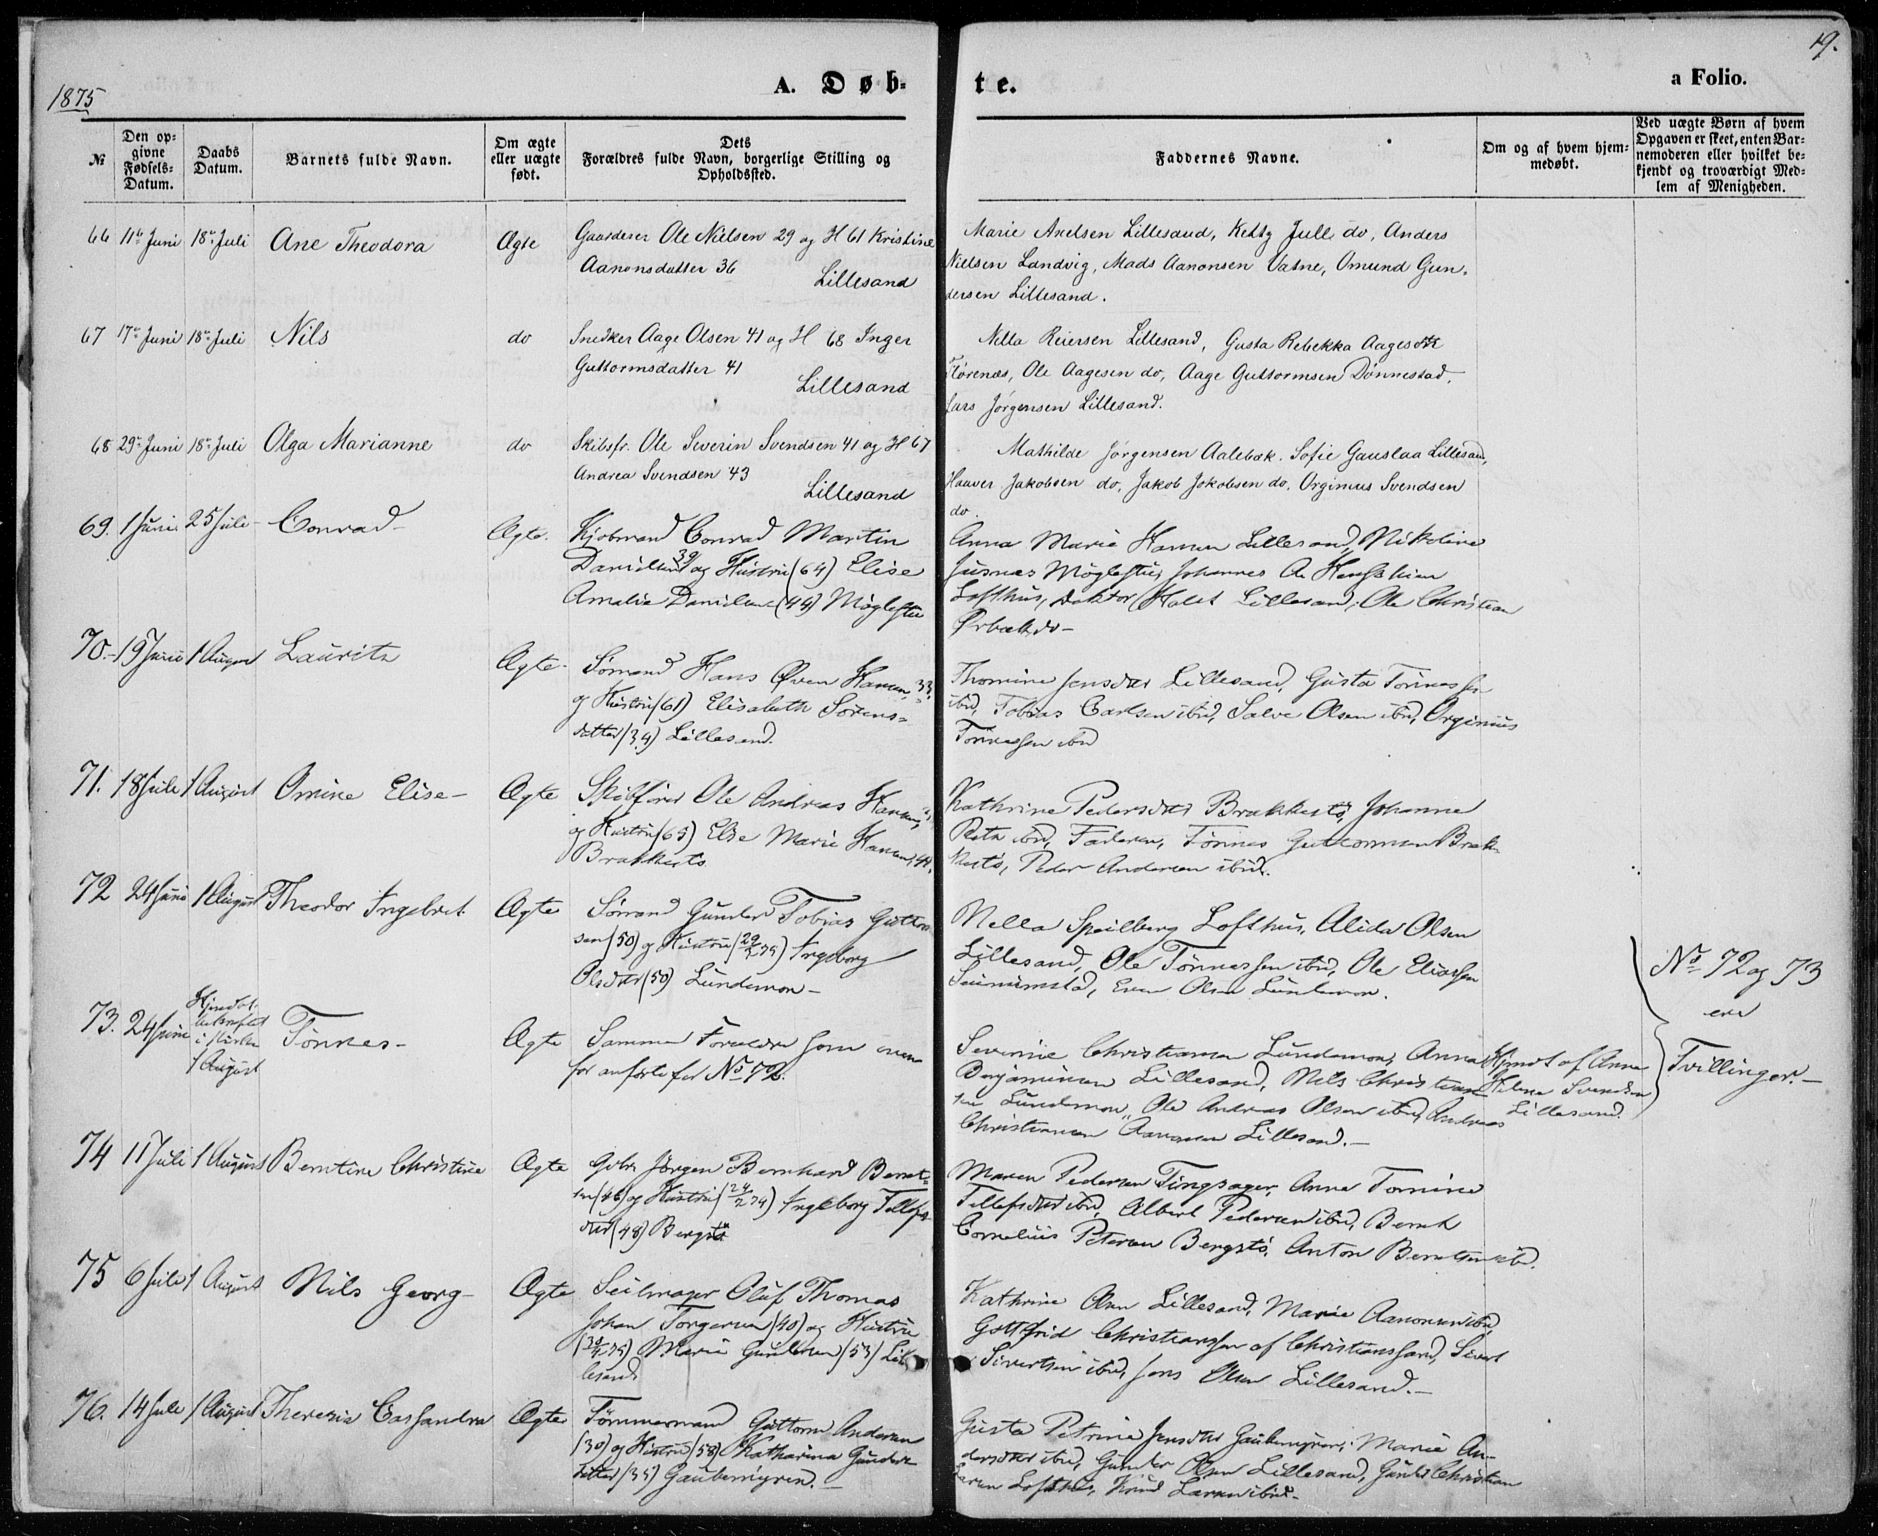 1875
A. Døb-
te.
a Folio.
19.
№
Den op-
givne
Fødsels-
Datum.
Daabs
Datum.
Barnets fulde Navn.
Om ægte
eller uægte
født.
Dets
Forældres fulde Navn, borgerlige Stilling og
Opholdssted.
Faddernes Navne.
Om og af hvem hjem-
medøbt.
Ved uægte Børn af hvem
Opgaven er skeet, enten Bar-
nemoderen eller hvilket be-
kjendt og troværdigt Med-
lem af Menigheden.
66 11te Juni 18de Juli Ane Theodora Ægte
Gaardeier Ole Nielsen 29 og H 61 Kristine
Aanonsdatter 36
Lillesand
Marie Axelsen Lillesand, Ketty Juell do, Anders
Nielsen Landvig, Mads Aanonsen Vatne, Omund Gun-
dersen Lillesand.
67 17de Juni 18de Juli Nils do
Snedker Aage Olsen 41 og H 68 Inger
Guttormsdatter 41
Lillesand
Nilla Reiersen Lillesand, Gusta Rebekka Aagesdtr
Flørenæs, Ole Aagesen do, Aage Guttormsen Dønnestad,
Lars Jørgensen Lillesand.
68 29de Juni 18de Juli Olga Marianne do
Skibsfr. Ole Severin Svendsen 41 og H 67
Andrea Svendsen 43
Lillesand
Mathilde Jørgensen Aalebæk. Sofie Gauslaa Lillesand,
Haaver Jakobsen do, Jakob Jokobsen do. Orginius Svendsen
do.
69. 1 Juni 25 Juli Conrad Ægte.
Kjøbmand Conrad Martin
Danielsen 39 og Hustru (64) Elise
Amalia Danielsen (44) Møglestue
Anna Marie Hansen Lillesand, Nikoline
Jusnæs Møglestue, Johannes A
Lofthus, Doktor Lillesand, Ole Christian
Ørbæk do
70. 19 Juni 1 August Lauritz Ægte
Sømand Hans Øven Hansen, 33,
og Hustru (61) Elisabeth Sørens-
datter (34) Lillesand.
Thomine Jensdtr Lillesand, Gusta Tønnessen
ibid, Tobias Carlsen ibid, Salve Olsen ibid, Orginius
Tønnessen ibid
71. 18 Juli 1 August Omine Elise Ægte
Skibsfører Ole Andreas Hansen,
og Hustru (65) Else Marie Hansen, 44,
Brækkestø
Kathrine Pedersdtr Brækkestø, Johanne
ibid, Faderen, Tønnes Guttormsen Bræk-
kestø, Peder Andersen ibid.
72 24 Juni 1 August Theodor Ingebret Ægte
Sømand Gunder Tobias Guttorm-
sen (50) og Hustru (29/2 75) Ingeborg
Olsdtr (50) Lundemon
Nella Speilberg Lofthus, Alida Olsen
Lillesand, Ole Tønnessen ibid, Ole Eliassen
Even Olsen Lundemon.
No 72 og 73
ere
Tvillinger.
73. 24 Juni
Hjemdøbt
bekræftet
i Kirken
1 August
Tønnes Ægte
Samme Forældre som oven-
for anførte for No 72.
Severine Christiansen Lundemon, Anna
Benjaminsen Lillesand, Nils Christian-
sen Lundemon, Ole Andreas Olsen ibid, Andreas
Christiansen Lillesand.
Hjmdt af Anne
Helene Svendsen
Lillesand.
74 11 Juli 1 August Berntine Christine Ægte
Jørgen Bernhard Bernt-
sen (46) og Hustru (24/2 74) Ingeborg Tellefs-
dtr (48) Bergstø
Maren Pedersen Tingsager, Anne Tomine
Tellefsdtr ibid, Albert Pedersen ibid, Bernt
Cornelius Petersen Bergstø, Anton Berntsen ibid.
75 6 Juli 1 August Nils Georg Ægte
Seilmager Oluf Thomas
Johan Torgersen (40) og Hustru
Marie Gundersen (53) Lil-
lesand
Kathrine Olsen Lillesand, Marie Aanonsen ibid,
Gottfrid Christiansen af Christianssand, Sivert
Sivertsen ibid, Jens Olsen Lillesand.
76. 14 Juli 1 August Theresia Cassandra Ægte
Tømmermand Guttorm Andersen
(30) og Hustru (58) Katharina Gunders-
datter (35) Gaubemyren.
Gusta Petrine Jensdtr Gaubemyren, Marie An-
dersdtr ibid, Gunder Olsen Lillesand, Christian
Larsen Lofthus, Knud Larsen ibid